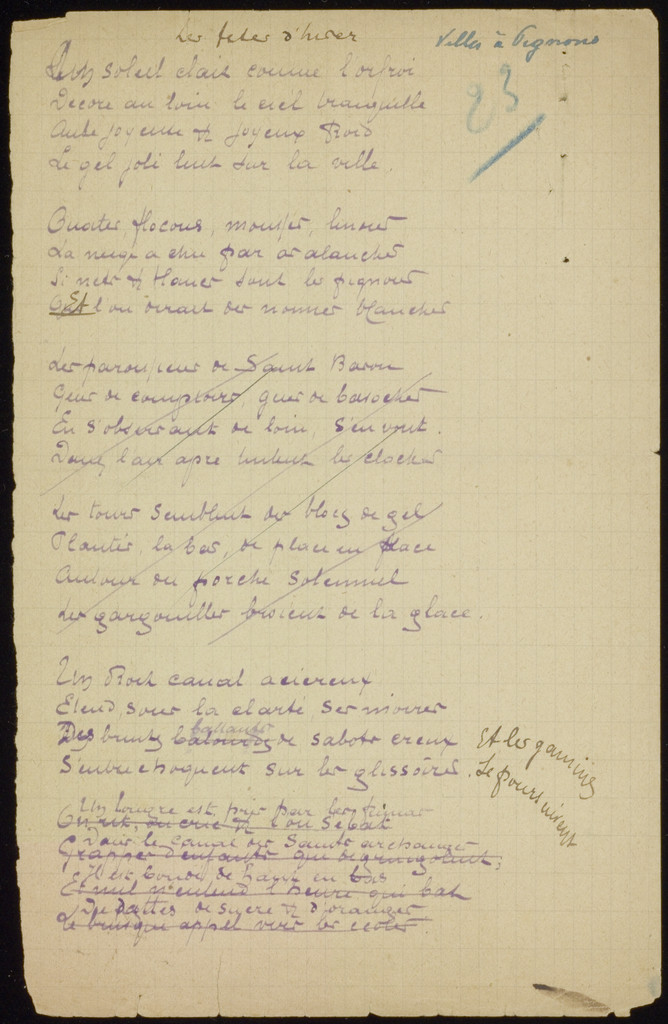 Les fêtes d'hiver
Villes à Pignons
23
Un soleil clair comme l'orfroi
Décore au loin le ciel tranquille
Aube joyeuse & joyeux Rois
Le gel joli luit sur la ville.
Ouates, flocons, mousses, linons
La neige a chu par avalanches
Si nets & blancs sont les pignons
Et l'on dirait des nonnes blanches
Les paroissiens de Saint Bavon
Gens de comptoirs, gens de basoches
En s'observant de loin, s'en vont.
Dans l'air âpre tintent les cloches
Les tours semblent des blocs de gel
Plantés, là bas, de place en place
Autour du porche solennel
Les gargouilles broient de la glace.
UnBoit canal aciereux
Etend, sous la clarté, ses moires
ballants
Des bruits de sabots creux
S'entrechoquent sur les glissoires.
Et les gamins
Se poursuivent
Un lougre est pris par les frimas
On rit, on crie & l'on se bat
Dans le canal des Saints archanges
Grappes d'enfants qui dégringolent,
Il est bondé de haut en bas
Et nul n'entend l'heure qui bat
De dattes de sucre & d'oranges
Le brusque appel vers les écoles.